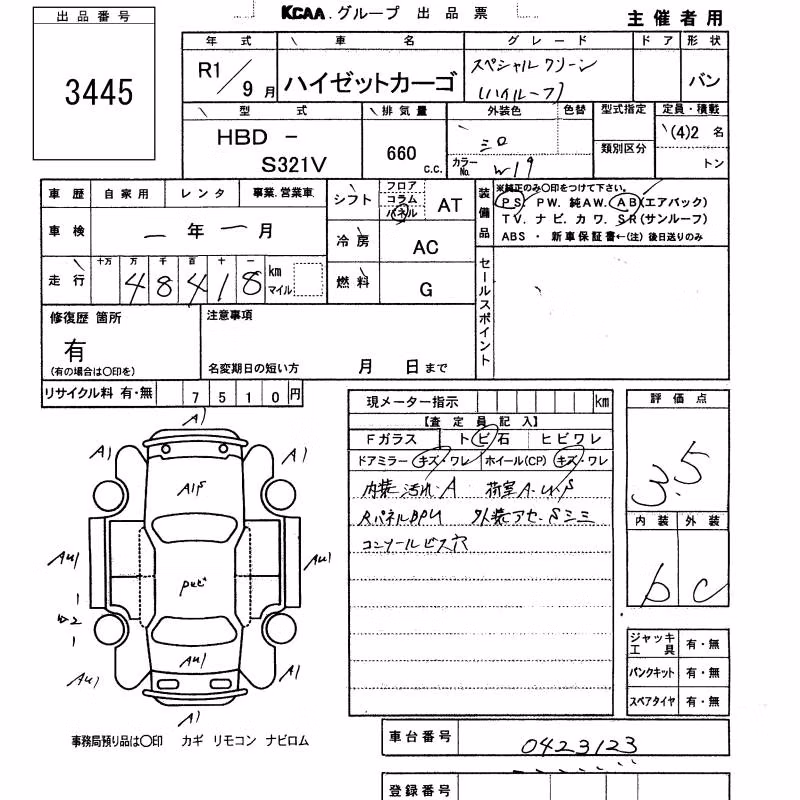 KCAA.グループ 出品票
主催者用
出品番号
3445
年式 車名 グレード ドア 形状
R1/9月 ハイゼットカーゴ スペシャルクリーン (ハイルーフ) バン
型式 排気量 外装色 色替 型式指定 定員・積載
HBD -
S321V
660 c.c.
シロ
カラーNo. W19
類別区分
(4)2 名
トン
車歴 自家用 レンタ 事業.営業車
車検 年 月
走行 十万 万 千 百 十 一
48418 km
マイル
シフト フロア コラム パネル AT
冷房 AC
燃料 G
装備品
※純正のみ〇印をつけて下さい。
PS PW. 純AW. AB(エアバック)
TV. ナビ. カワ. SR(サンルーフ)
ABS ・ 新車保証書←(注) 後日送りのみ
セールスポイント
修復歴 箇所
有
(有の場合は〇印を)
注意事項
名変期日の短い方 月 日まで
リサイクル料 有・無 7510円
現メーター指示 km
【査定員記入】
Fガラス トビ石 ヒビワレ
ドアミラー キズ・ワレ ホイール(CP) キズ・ワレ
内装 汚れ・A 荷室A.U.S
RパネルBPU 外装アセ.Sシミ
コンソールビス穴
評価点
3.5
内装 外装
b c
ジャッキ 工具 有・無
パンクキット 有・無
スペアタイヤ 有・無
A1
A1 A1
A1
AU1 AU1
1
2
1
AU1
AU1 A1
A1
事務局預り品は〇印 カギ リモコン ナビロム
車台番号 0423123
登録番号